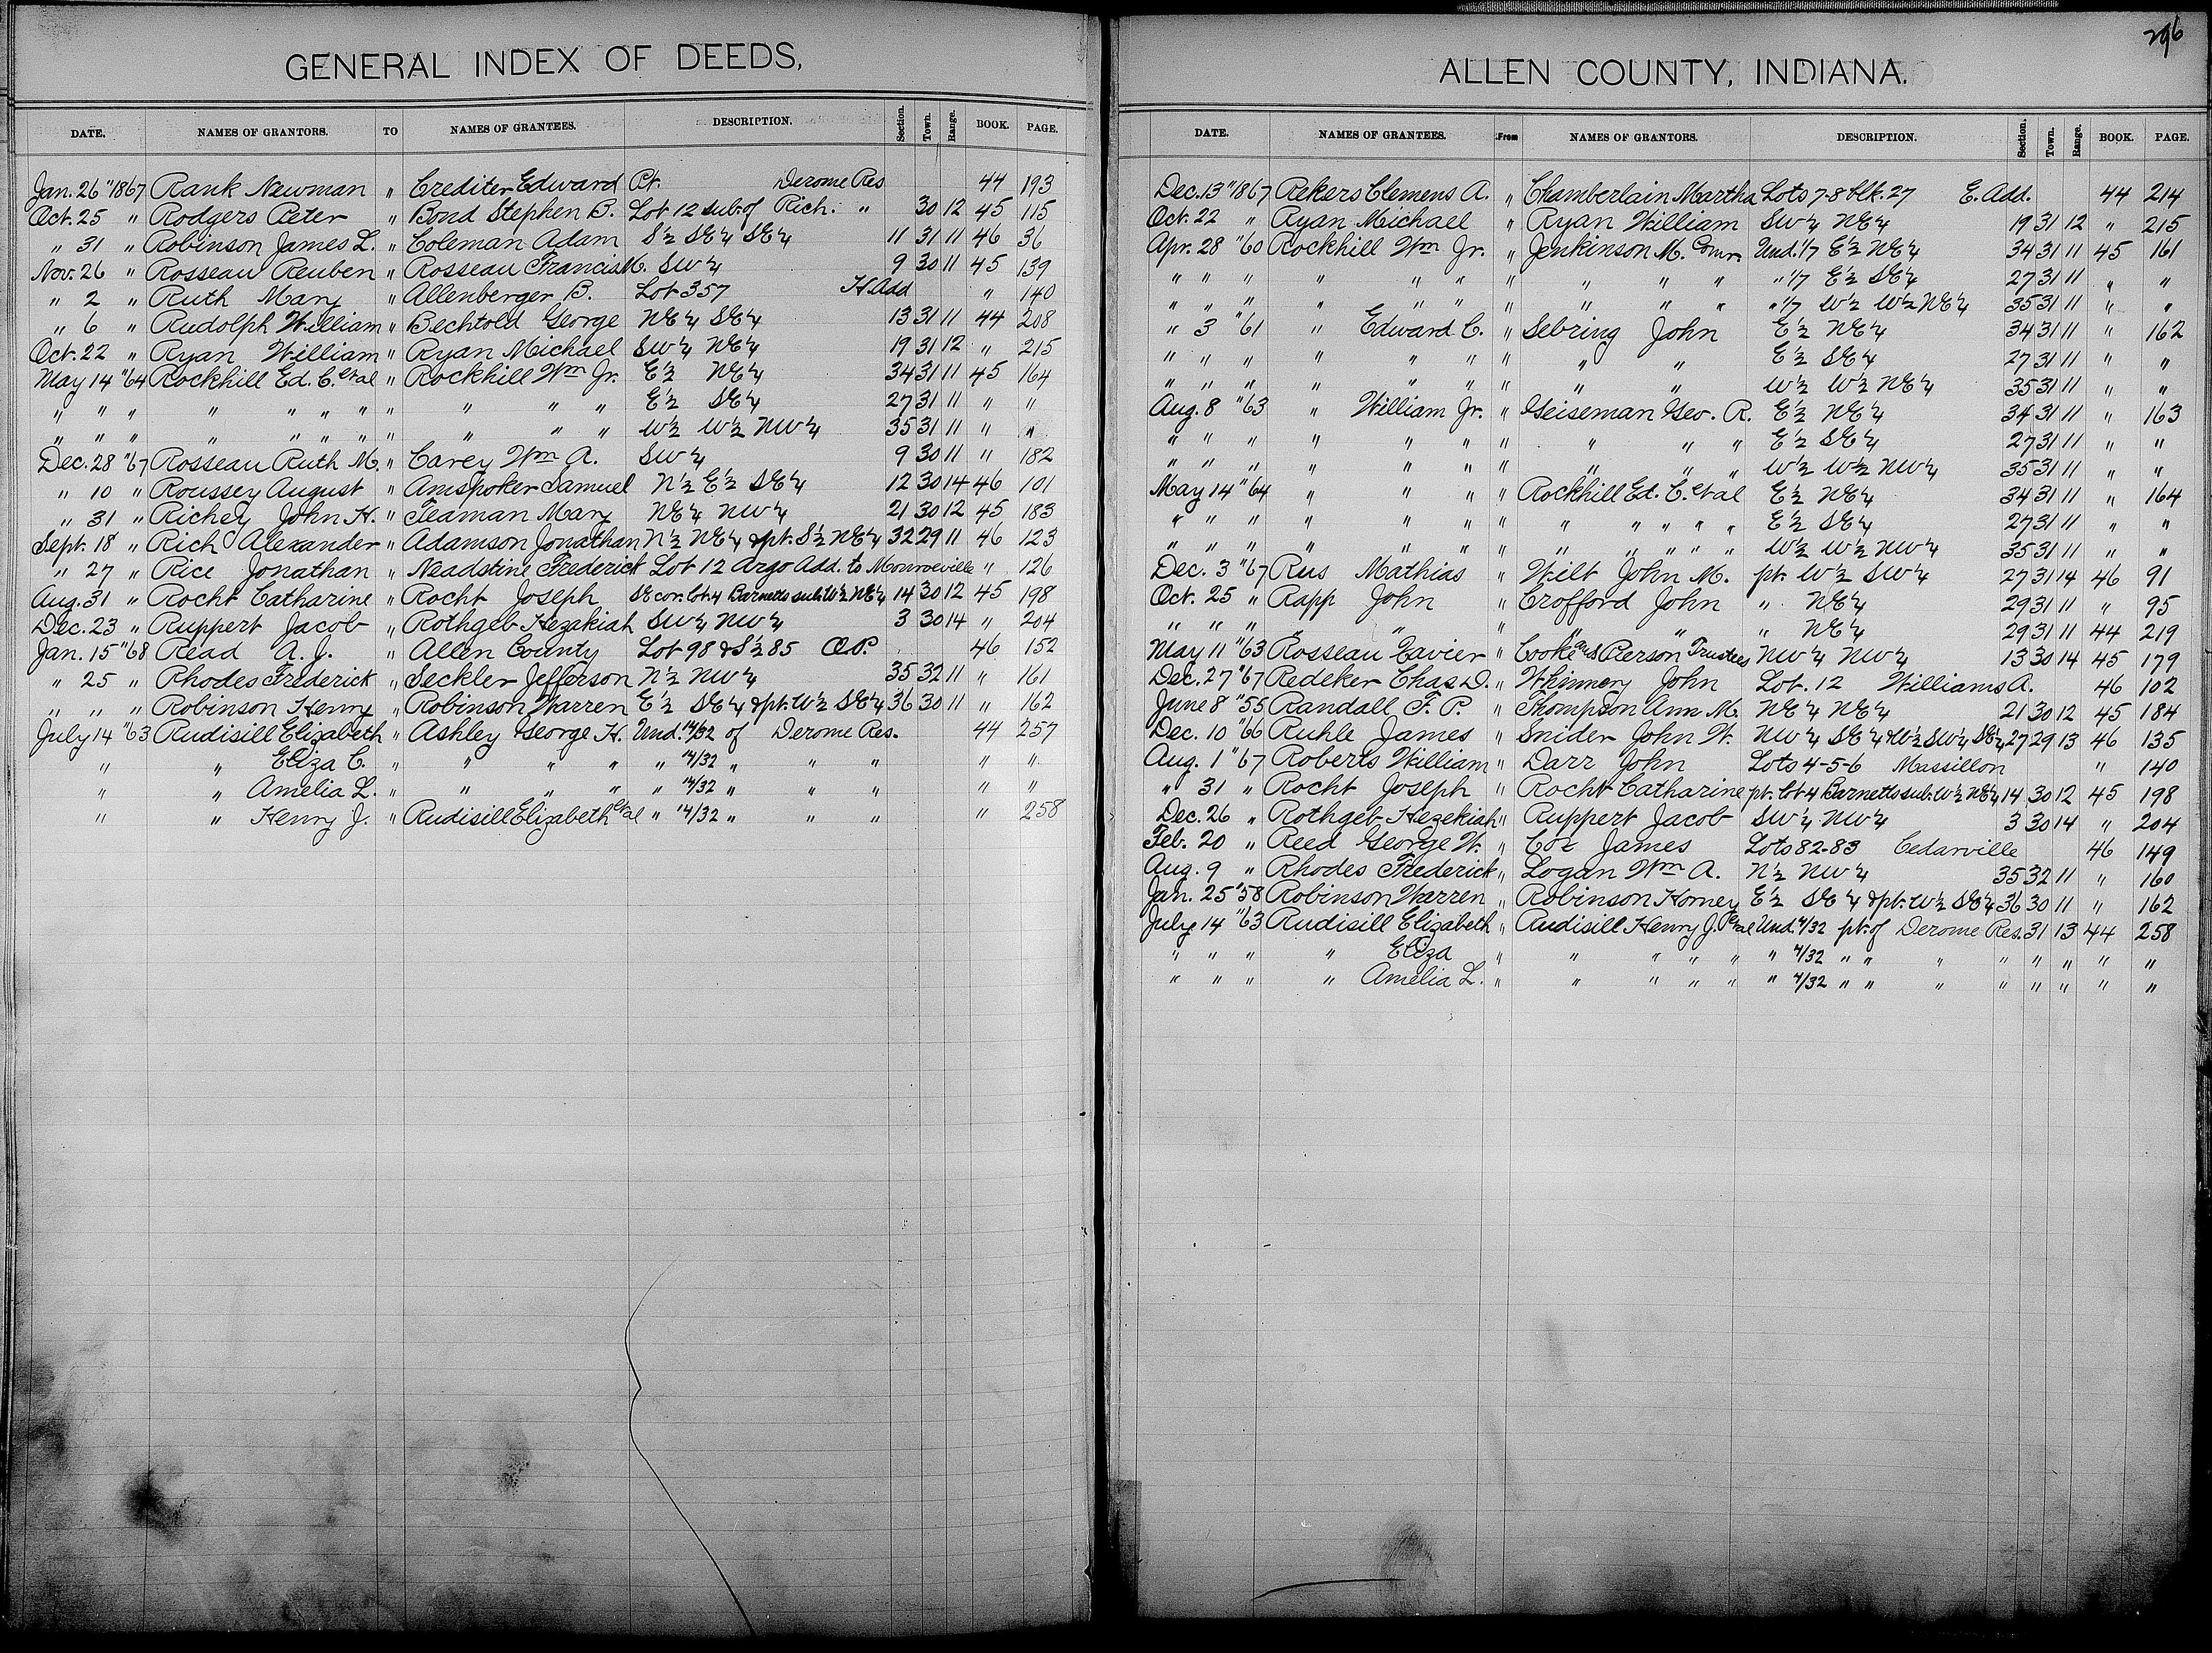 296
GENERAL INDEX OF DEEDS,
DATE. NAMES OF GRANTORS. TO NAMES OF GRANTEES. DESCRIPTION. Section. Town. Range. BOOK. PAGE.
Jan. 26 "1867 Rank Newman " Crediter Edward Pt. Derome Res 44 193
Oct. 25 " Rodgers Peter " Bond Stephen B. Lot 12 sub. of Rich. " 30 12 45 115
" 31 " Robinson James L. " Coleman Adam S½ SE¼ SE¼ 11 31 11 46 36
Nov. 26 " Rosseau Reuben " Rosseau Francis M. SW¼ 9 30 11 45 139
" 2 " Ruth Mary " Allenberger B. Lot 357 H. Add " 140
" 6 " Rudolph William " Bechtold George NE¼ SE¼ 13 31 11 44 208
Oct. 22 " Ryan William " Ryan Michael SW¼ NE¼ 19 31 12 " 215
May 14 "64 Rockhill Ed. C. et al " Rockhill Wm Jr. E½ NE¼ 34 31 11 45 164
" " " " " " " " " " " E½ SE¼ 27 31 11 " "
" " " " " " " " " " " W½ W½ NW¼ 35 31 11 " "
Dec. 28 "67 Rosseau Ruth M. " Carey Wm A. SW¼ 9 30 11 " 182
" 10 " Roussey August " Amspoker Samuel N½ E½ SE¼ 12 30 14 46 101
" 31 " Richey John H. " Teaman Mary NE¼ NW¼ 21 30 12 45 183
Sept. 18 " Rich Alexander " Adamson Jonathan N½ NE¼ & pt. S½ NE¼ 32 29 11 46 123
" 27 " Rice Jonathan " Neadstine Frederick Lot 12 Argo Add. to Monroeville " 126
Aug. 31 " Rocht Catharine " Rocht Joseph SE cor. Lot 4 Barnetts sub. W½ NE¼ 14 30 12 45 198
Dec. 23 " Ruppert Jacob " Rothgeb Hezekiah SW¼ NW¼ 3 30 14 " 204
Jan. 15 "68 Read A. J. " Allen County Lot 98 & S½ 85 O.P. 46 152
" 25 " Rhodes Frederick " Seckler Jefferson N½ NW¼ 35 32 11 " 161
" " " Robinson Henry " Robinson Warren E½ SE¼ & pt. W½ SE¼ 36 30 11 " 162
July 14 "63 Rudisill Elizabeth " Ashley George H. Und. 14/32 of Derome Res. 44 257
" " Eliza C. " " " " " 14/32 " " " " "
" " Amelia L. " " " " " 14/32 " " " " "
" " Henry J. " Rudisill Elizabeth et al " 14/32 " " " " 258
ALLEN COUNTY, INDIANA.
DATE. NAMES OF GRANTEES. From NAMES OF GRANTORS. DESCRIPTION. Section. Town. Range. BOOK. PAGE.
Dec. 13 "1867 Rekers Clemens A. " Chamberlain Martha Lots 7-8 blk. 27 E. Add. 44 214
Oct. 22 " Ryan Michael " Ryan William SW¼ NE¼ 19 31 12 " 215
Apr. 28 "60 Rockhill Wm Jr. " Jenkinson M. Comr. Und. 1/7 E½ NE¼ 34 31 11 45 161
" " " " " " " " " " " 1/7 E½ SE¼ 27 31 11 " "
" " " " " " " " " " " 1/7 W½ W½ NE¼ 35 31 11 " "
" 3 "61 " Edward C. " Sebring John E½ NE¼ 34 31 11 " 162
" " " " " " " " " E½ SE¼ 27 31 11 " "
" " " " " " " " " W½ W½ NE¼ 35 31 11 " "
Aug. 8 "63 " William Jr. " Geiseman Geo. R. E½ NE¼ 34 31 11 " 163
" " " " " " " " " " E½ SE¼ 27 31 11 " "
" " " " " " " " " " W½ W½ NW¼ 35 31 11 " "
May 14 "64 " " " " Rockhill Ed. C. et al E½ NE¼ 34 31 11 " 164
" " " " " " " " " " " " E½ SE¼ 27 31 11 " "
" " " " " " " " " " " " W½ W½ NW¼ 35 31 11 " "
Dec. 3 "67 Rus Mathias " Wilt John M. pt. W½ SW¼ 27 31 14 46 91
Oct. 25 " Rapp John " Crofford John " NE¼ 29 31 11 " 95
" " " " " " " " " NE¼ 29 31 11 44 219
May 11 "63 Rosseau Cavier " Cooke and Pierson Trustees NW¼ NW¼ 13 30 14 45 179
Dec. 27 "67 Redeker Chas D. " Whinnery John Lot. 12 Williams A. 46 102
June 8 "55 Randall F. P. " Thompson Ann M. NE¼ NE¼ 21 30 12 45 184
Dec. 10 "66 Ruhle James " Snider John W. NW¼ SE¼ & W½ SW¼ SE¼ 27 29 13 46 135
Aug. 1 "67 Roberts William " Darr John Lots 4-5-6 Massillon " 140
" 31 " Rocht Joseph " Rocht Catharine pt. Lot 4 Barnetts sub. W½ NE¼ 14 30 12 45 198
Dec. 26 " Rothgeb Hezekiah " Ruppert Jacob SW¼ NW¼ 3 30 14 " 204
Feb. 20 " Reed George W. " Cox James Lots 82-83 Cedarville 46 149
Aug. 9 " Rhodes Frederick " Logan Wm A. N½ NW¼ 35 32 11 " 160
Jan. 25 "58 Robinson Warren " Robinson Homey E½ SE¼ & pt. W½ SE¼ 36 30 11 " 162
July 14 "63 Rudisill Elizabeth " Rudisill Henry J. et al Und. 4/32 pt. of Derome Res. 31 13 44 258
" " " " Eliza " " " " " " 4/32 " " " " " " " " "
" " " " Amelia L. " " " " " " 4/32 " " " " " " " " "